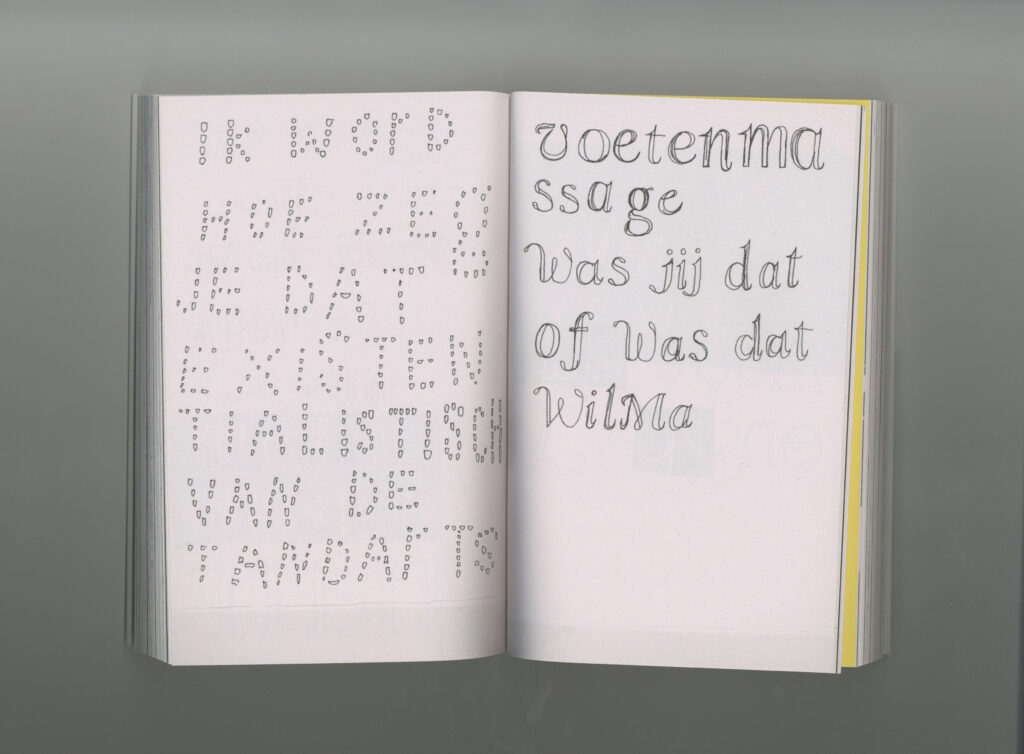 IK WorD
HOE ZEG
JE DAT
EXISTEN
TIALISTISCH
VAN DE
TANDARTS
voetenma
ssage
Was jij dat
of Was dat
WilMa